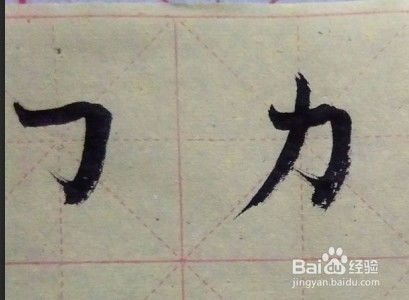 𠃌 力
Baidu 经验
jingyan.baidu.com